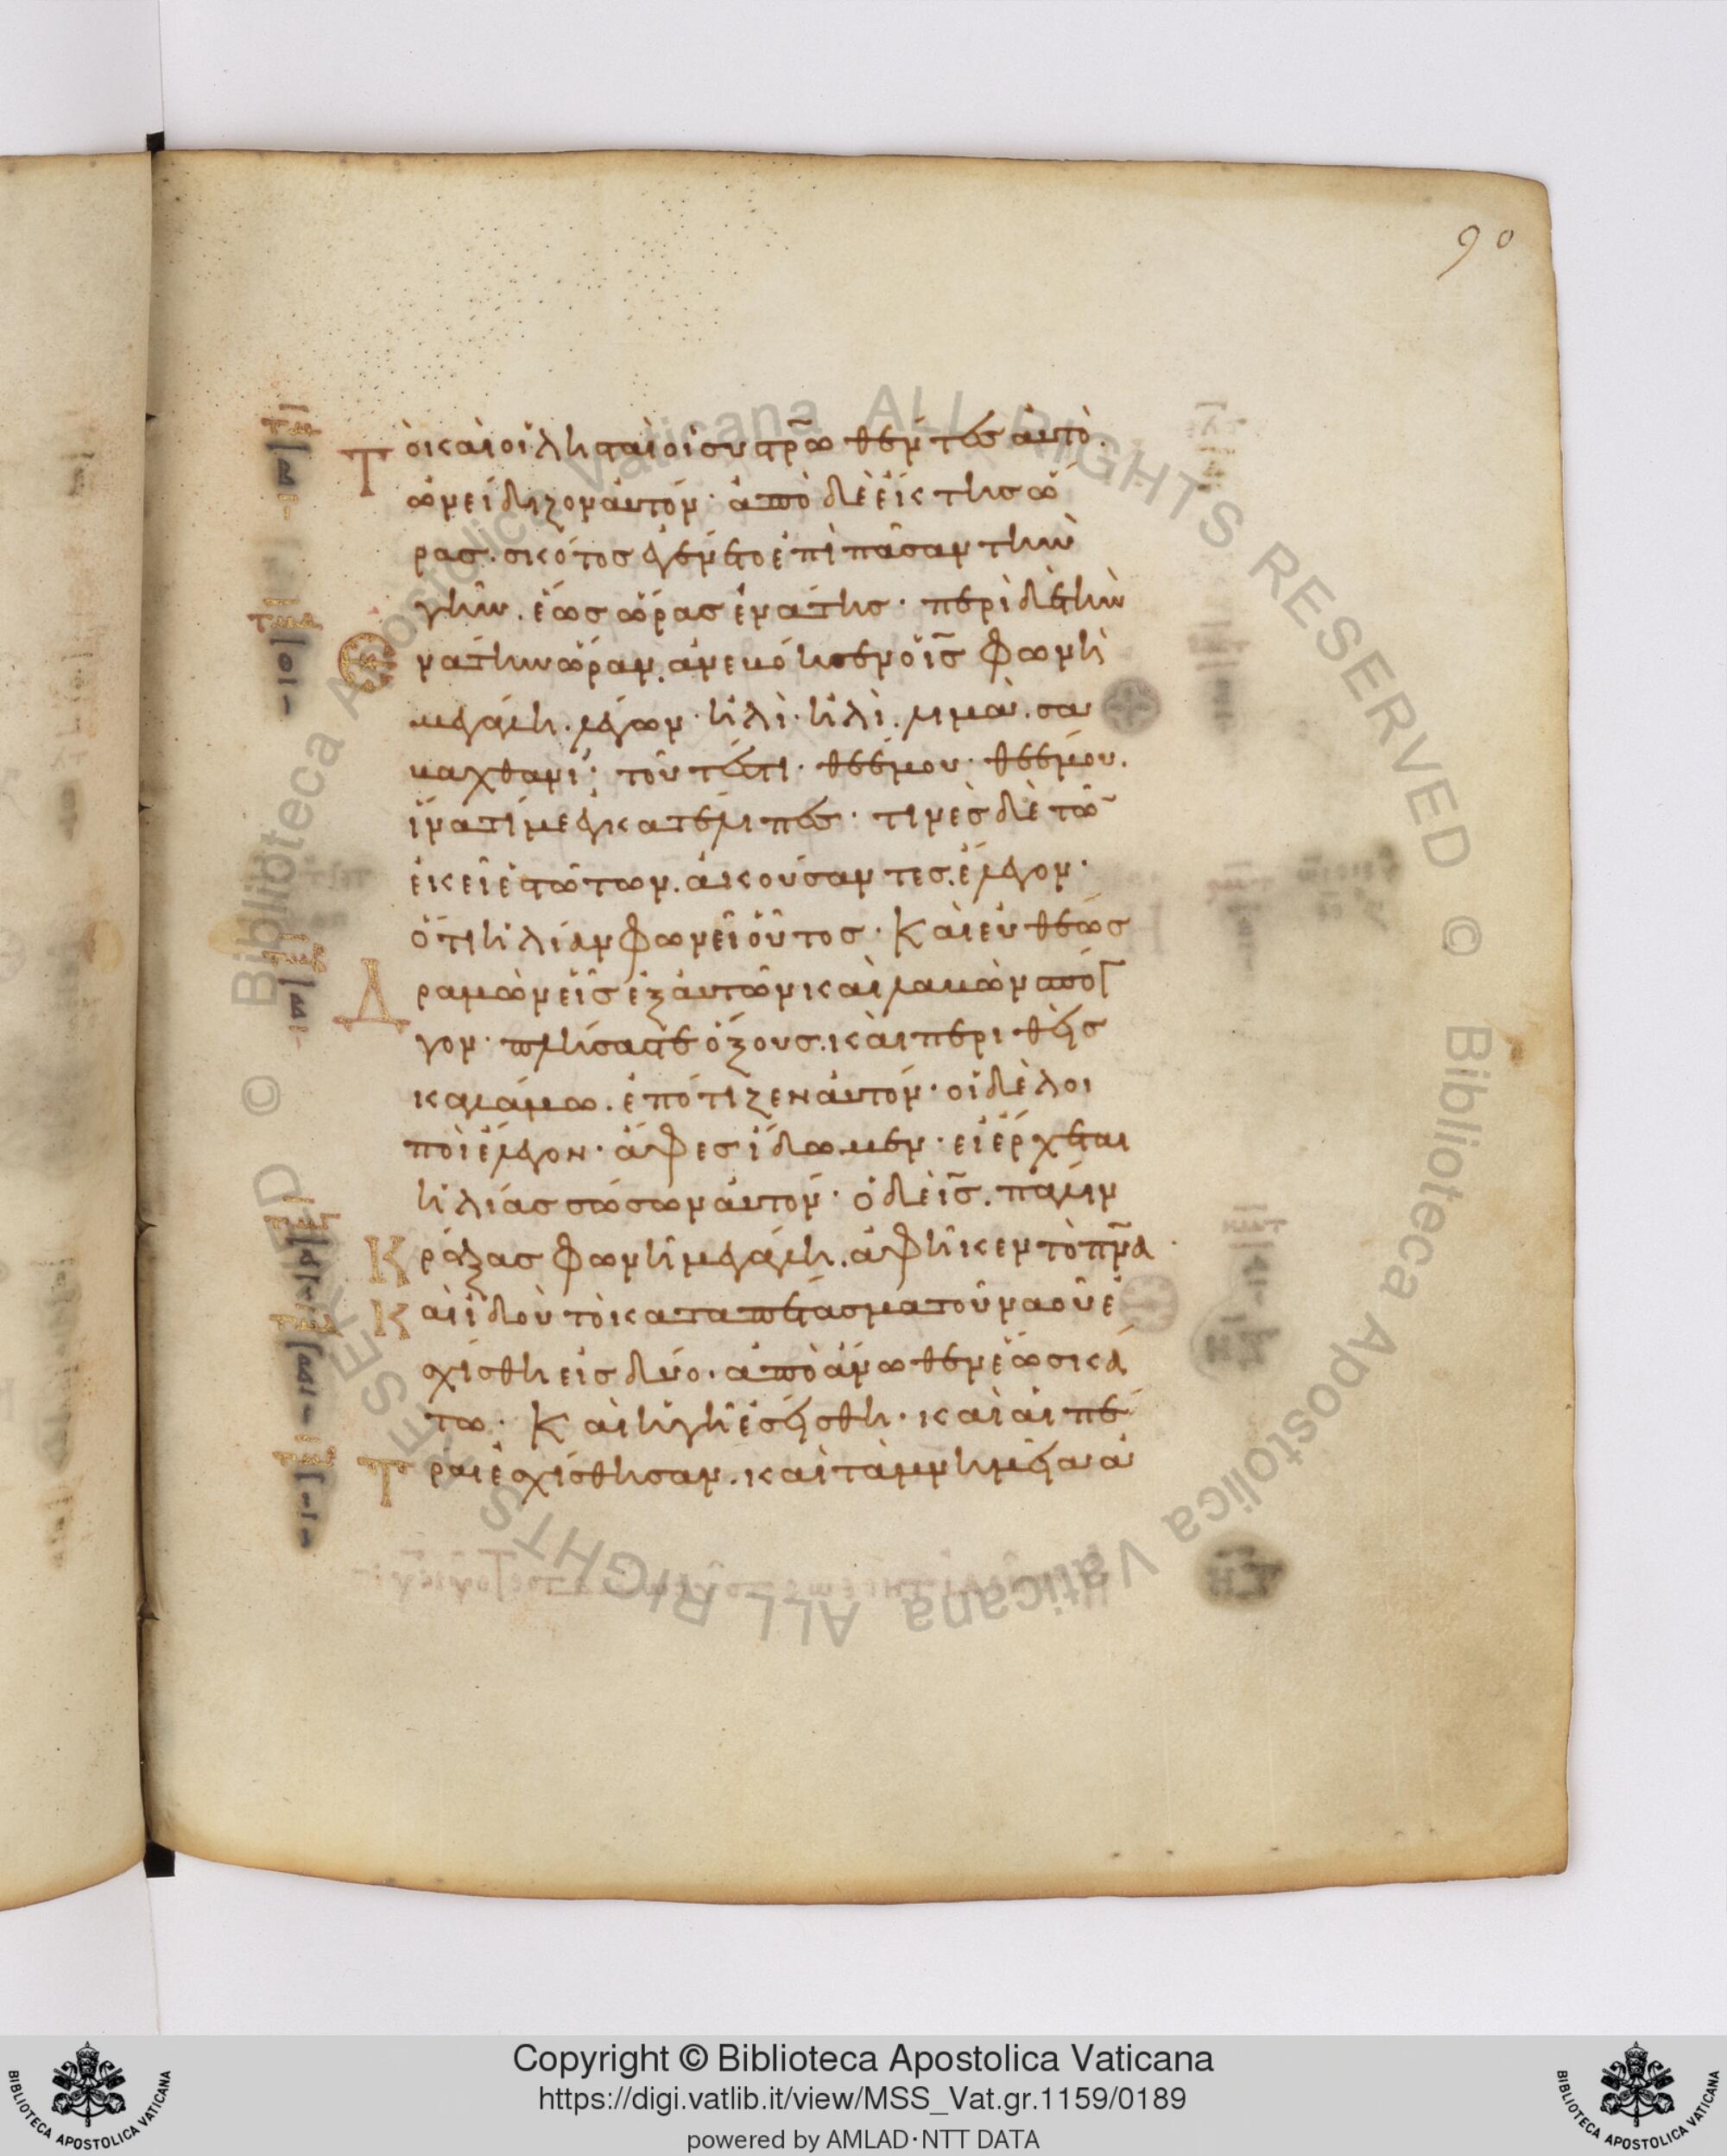 90
Τὸ καὶ οἱ λησταὶ οἱ συστρ̅ωθέντες αὐτὸ·
ὠνείδιζον αὐτόν· ἀπὸ δὲ ἕκτης ὥ
ρας. σκότος ἐγένετο ἐπὶ πᾶσαν τὴν
γῆν. ἕως ὥρας ἐνάτης· περὶ δὲ τὴν
Ἐνάτην ὥραν. ἀνεβόησεν ὁ ι̅σ̅ φωνὴ
μεγάλη. λέγων· ἠλὶ· ἠλὶ. λιμὰ. σα
βαχθανί; τοῦτέστι· θεέ μου· θεέ μου.
ἵνατί με ἐγκατέλιπες· τινὲς δὲ τῶ
ἐκεῖ ἑστώτων. ἀκούσαντες. ἔλεγον·
ὅτι ἠλίαν φωνεῖ οὗτος· Καὶ εὐθέως
Δραμὼν εἷς ἐξ αὐτῶν καὶ λαβὼν σπόγ
γον· πλήσας τε ὄξους. καὶ περιθεὶς
καλάμω. ἐπότιζεν αὐτόν· οἱ δὲ λοι
ποὶ ἔλεγον· ἄφες ἴδωμεν· εἰ ἔρχεται
ἠλίας σώσων αὐτόν· ὁ δὲ ι̅σ̅. πάλιν
Κράξας φωνῆ μεγάλη. ἀφῆκεν τὸ π̅ν̅α̅·
Καὶ ἰδοὺ τὸ καταπέτασμα τοῦ ναοῦ ἐ
σχίσθη εἰς δύο. ἀπὸ ἄνωθεν ἕως κά
τω· Καὶ ἡ γῆ ἐσείσθη· καὶ αἱ πέ
Τραι ἐσχίσθησαν. καὶ τὰ μνημεῖα ἀ
Copyright © Biblioteca Apostolica Vaticana
https://digi.vatlib.it/view/MSS_Vat.gr.1159/0189
powered by AMLAD·NTT DATA
BIBLIOTECA APOSTOLICA VATICANA
BIBLIOTECA APOSTOLICA VATICANA
© Biblioteca Apostolica Vaticana ALL RIGHTS RESERVED © Biblioteca Apostolica Vaticana ALL RIGHTS RESERVED